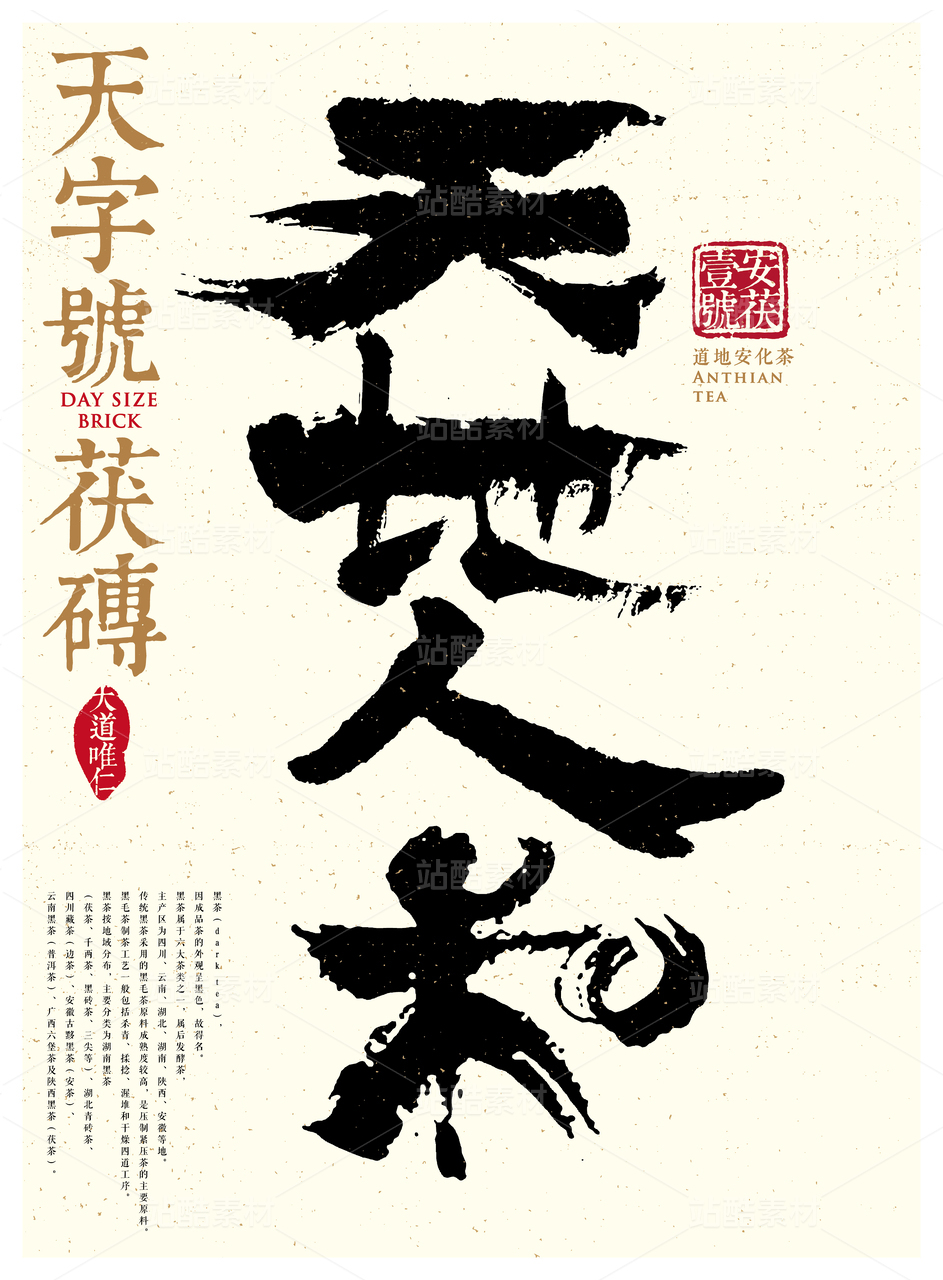 天地人和
安茯
壹號
道地安化茶
ANTHIAN
TEA
天字號
DAY SIZE
BRICK
茯磚
大道唯仁
黑茶（dark tea），
因成品茶的外观呈黑色，故得名。
黑茶属于六大茶类之一，属后发酵茶，
主产区为四川、云南、湖北、湖南、陕西、安徽等地。
传统黑茶采用的黑毛茶原料成熟度较高，是压制紧压茶的主要原料。
黑毛茶制茶工艺一般包括杀青、揉捻、渥堆和干燥四道工序。
黑茶按地域分布，主要分类为湖南黑茶
（茯茶、千两茶、黑砖茶、三尖等）、湖北青砖茶、
四川藏茶（边茶）、安徽古黟黑茶（安茶）、
云南黑茶（普洱茶）、广西六堡茶及陕西黑茶（茯茶）。
站酷素材